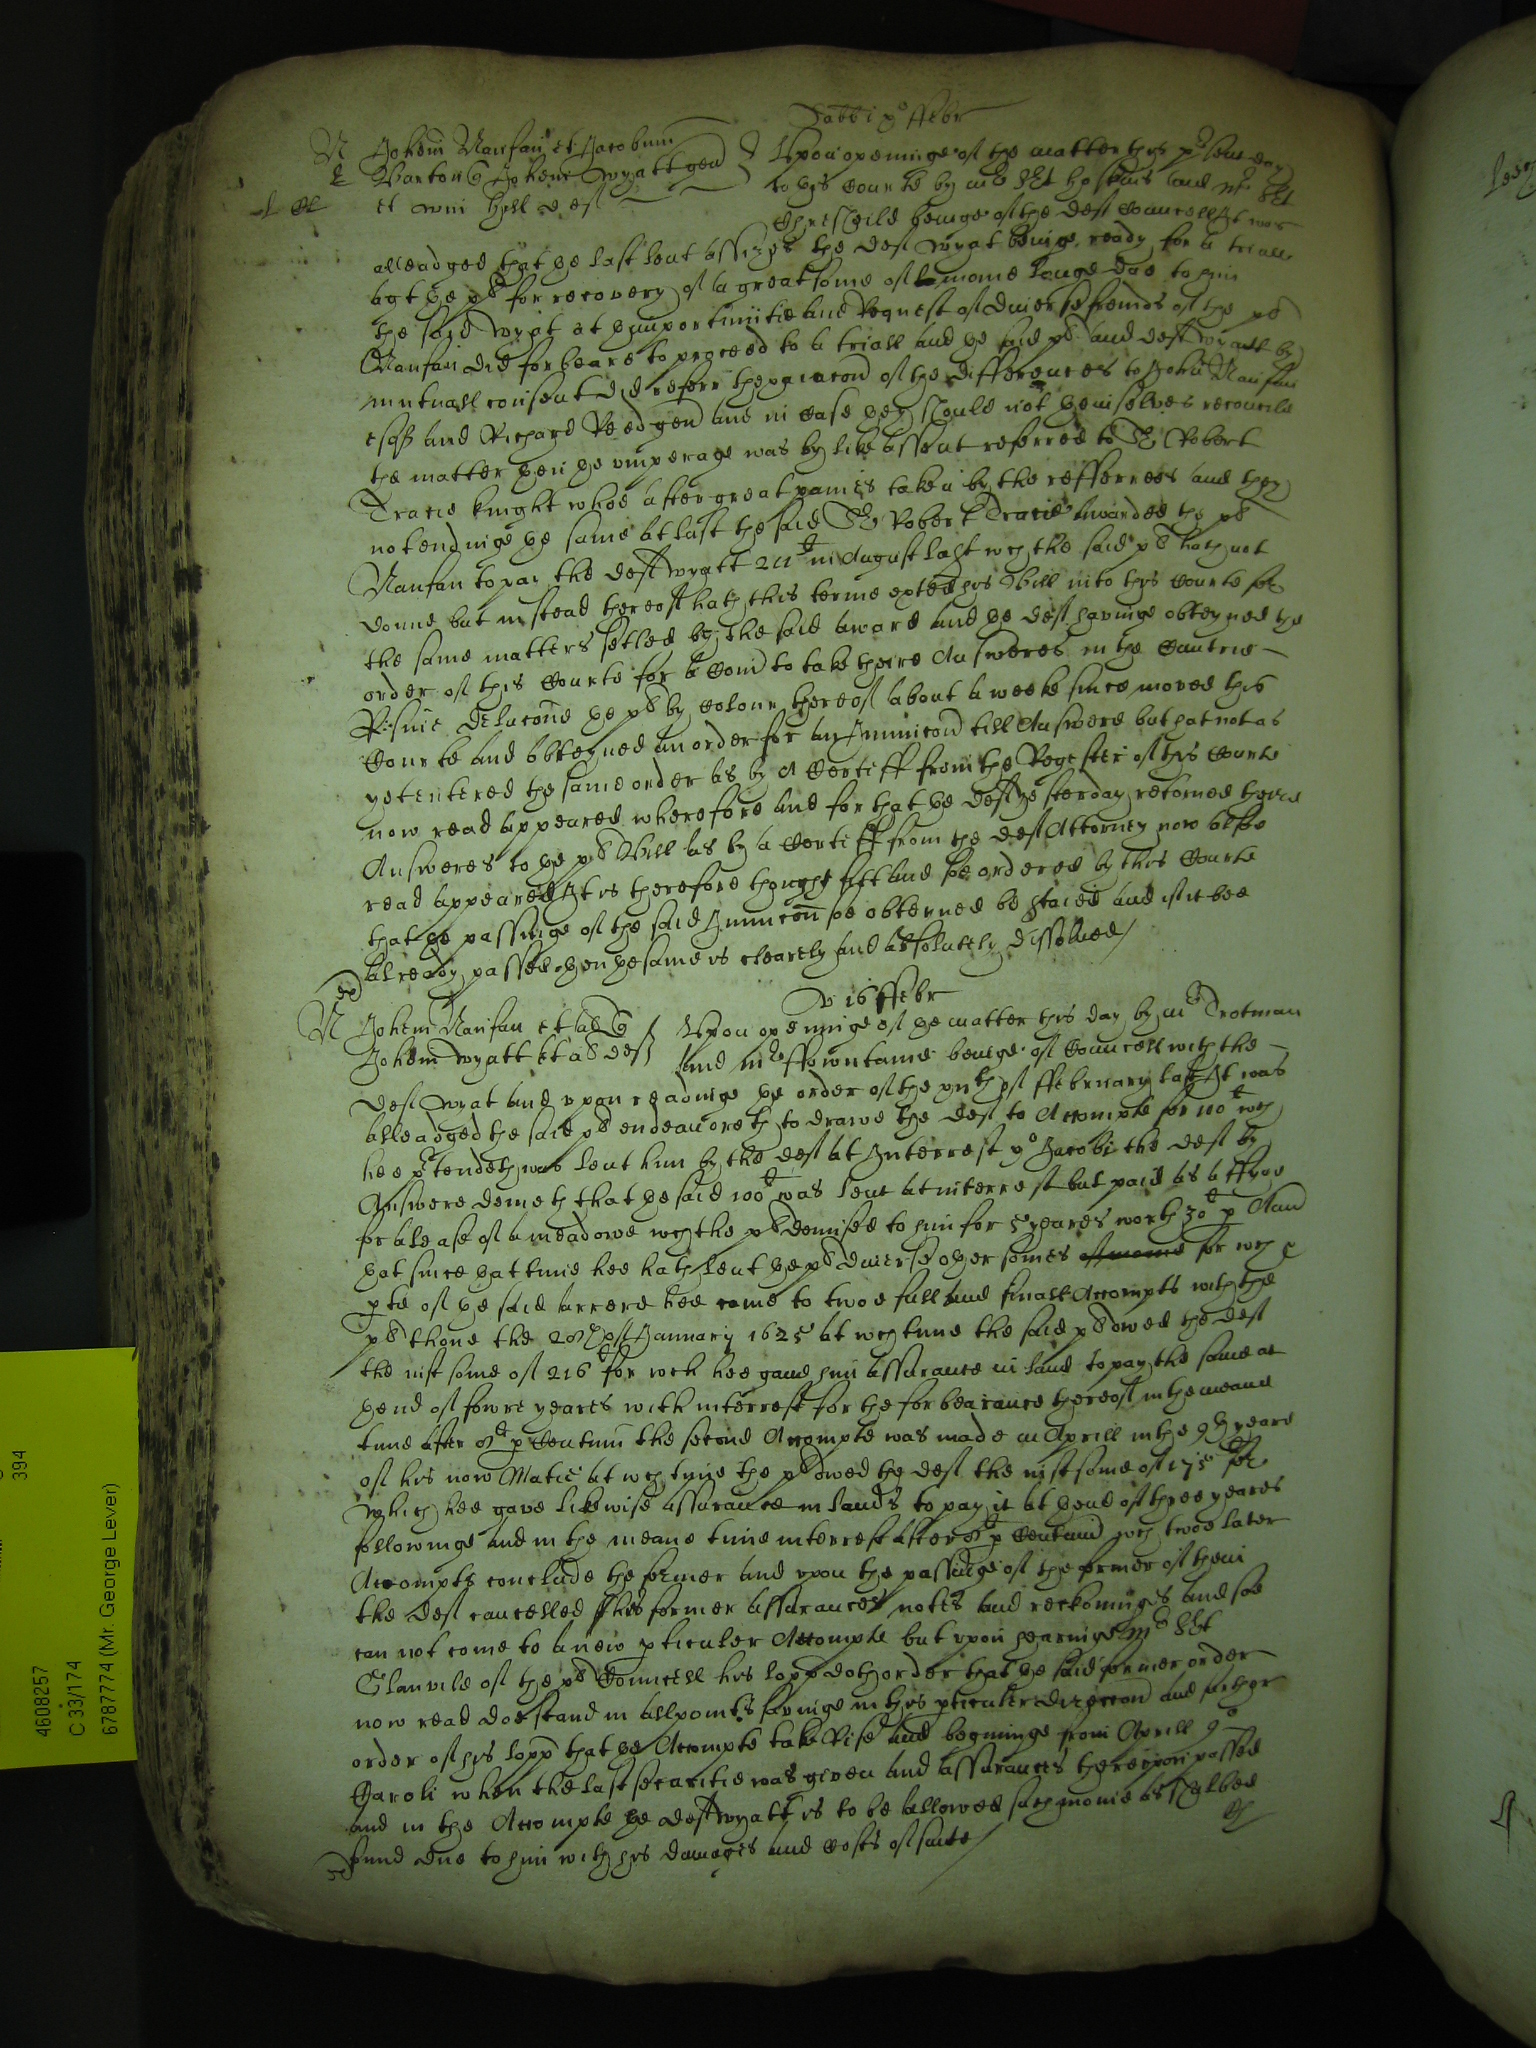 Sabbi po ffebr
N Johem Nanfan et Jacobum
Barton Johem Wyatt gen
et Will Hill def
Upon openinge of the matter this pnte day
to this Courte by mr Srt Hoskins and mr Srt
Thresheild beinge of the def Councell It was
alleadged that the last lent Assizes the def Wyat beinge ready for a triall
agt the plt for recovery of a great some of monie longe due to him
the said Wyat at the importunitie and Request of diverse freinds of the plt
Nanfan did forbeare to proceed to a triall and the said plt and deft Wyatt by
mutuall consent did referr the pacacon of the differences to John Nanfan
esqr and Richard Reed gen and in Case they should not themselves reconcile
the matter then the umperage was by like assent referred to Sr Robert
Tracie knight whoe after great paines taken by the refferrees and they
not endinge the same at last the said Sr Robert Tracie awarded the plt
Nanfan to pay the deft Wyatt in August last wch the said plt hath not
donne but in stead thereof hath this terme exted his Bill into this Courte for
the same matters setled by the said award and the deft havinge obteyned the
order of this Courte for a Comn to take theire Answeres in the Cuntrie
the plt by colour thereof about a weeke since moved this
Courte and obteyned an order for an Iniuncon till Answere but hat not as
yet entered the same order as by a Certiff from the Regester of this Courte
now read appeared wherefore and for that the deft yesterday retorned theire
Answeres to the plt Bill as by a Certiff from the deft Attorney now alsoe
read appeared It is therefore thought fitt and soe ordered by this Courte
that the passinge of the said Iniuncon soe obteyned be staied and if it bee
already passed then the same is clearely and absolutely dissolved
16 ffebr
N Johem Nanfan et al
Johem Wyatt et al def
Upon openinge of the matter this day by mr Trotman
and mr ffowntaine beinge of Councell with the
deft Wyat and upon readinge the order of the of ffebruary last It was
alleadged the said plt endeavoreth to drawe the deft to Accompte for wch
hee ptendeth was lent him by the deft at Interrest Jacobi the deft by
Answere denieth that the said 100 was lent at interrest but paid as a ffyne
for a lease of a meadowe wch the plt demised to him for 5 yeares worth 30 p Ann
that since that time hee hath lent the plt diverse other somes of monie for wch
pte of the said arrere hee came to twoe full and finall Accompts with the
plt thone the of January 1625 at wch time the said plt owed the deft
the iust some of 216 for wch hee gave him assurance in land to pay the same at
thend of fowre yeares with interrest for the forbearance thereof in the meane
time after 8 p Centum the second Accompte was made in Aprill in the 9th yeare
of his now Matie at wch time the plt owed the deft the iust some of 175 for
which hee gave likewise assurance in lands to pay it at thend of three yeares
followinge and in the meane time interrest after 8 p Centum wch twoe later
Accompts conclude the former and upon the passinge of the former of them
the deft cancelled the former assurances notes and reckoninges and soe
can not come to a new pticuler Accompte but upon hearinge mr Srt
Glanvile of the plt Councell his lopp doth order that the said former order
now read doe stand in all points savinge in this pticuler direccon and further
order of his lopp that the Accompte take Rise and beginninge from Aprill 9o
Caroli when the last securitie was given and assurances thereupon passed
and in the Accompte the deft Wyatt is to be allowed such monie as shalbee
found due to him with his damages and costs of suite
394
4608257
C 33/174
6787774 (Mr. George Lever)